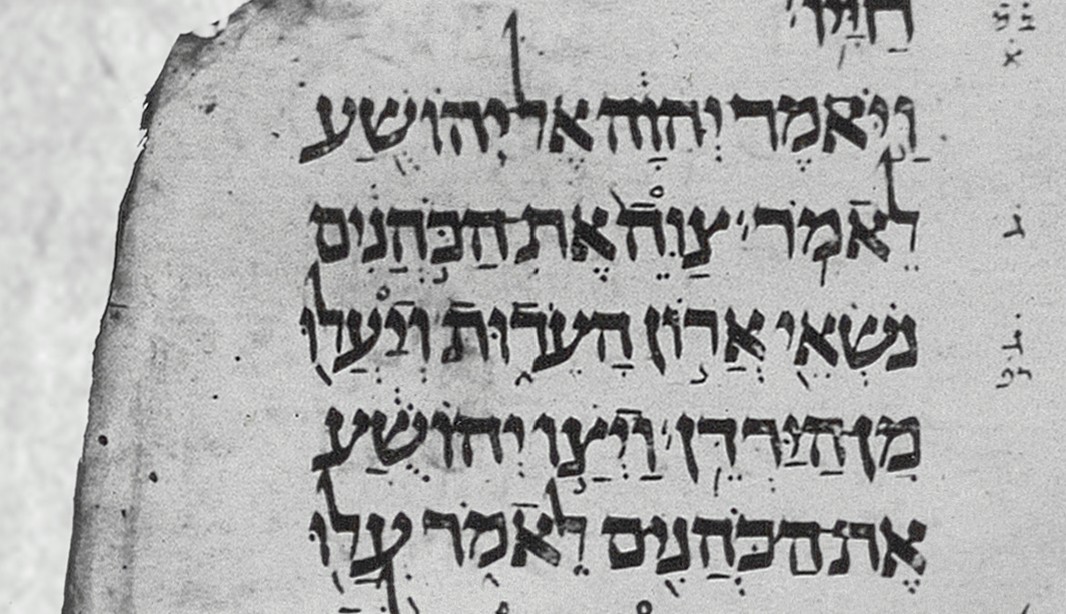 חַיָּיו׃
וַיֹּאמֶר יְהוָה אֶל יְהוֹשֻׁעַ
לֵאמֹר׃ צַוֵּה אֶת הַכֹּהֲנִים
נֹשְׂאֵי אֲרוֹן הָעֵדוּת וְיַעֲלוּ
מִן הַיַּרְדֵּן׃ וַיְצַו יְהוֹשֻׁעַ
אֶת הַכֹּהֲנִים לֵאמֹר עֲלוּ